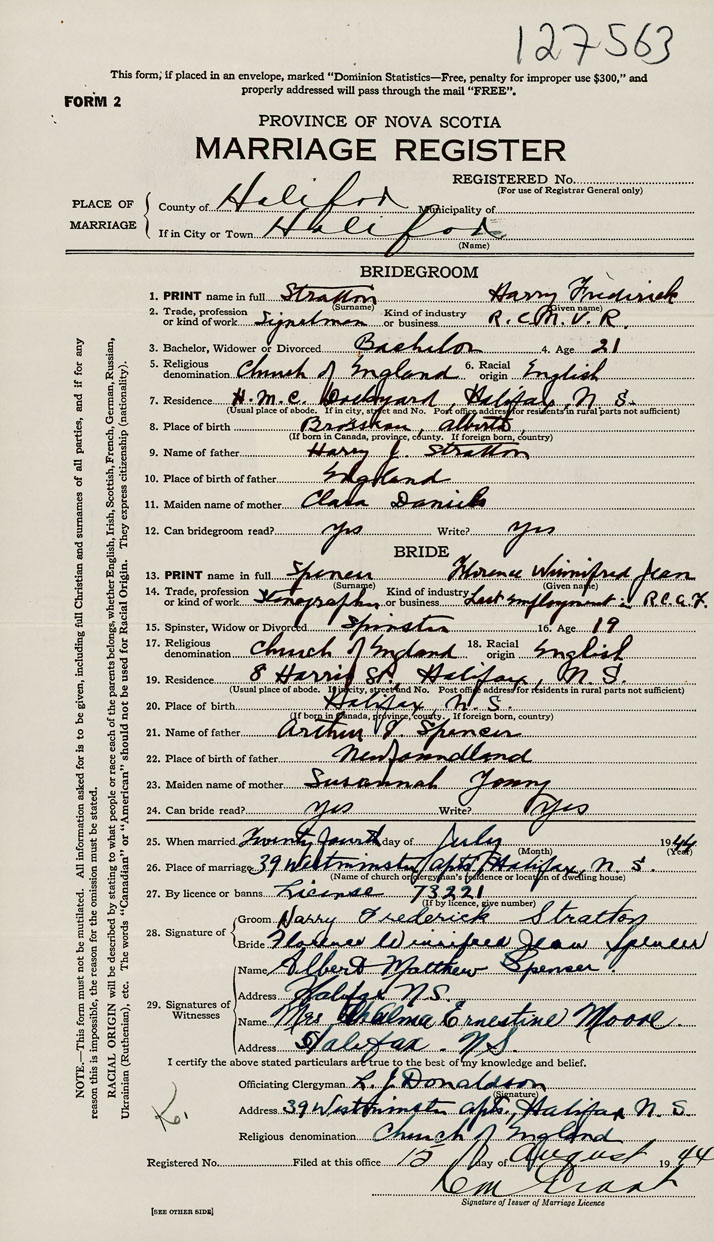 127563
This form, if placed in an envelope, marked "Dominion Statistics—Free, penalty for improper use $300," and
properly addressed will pass through the mail "FREE".
FORM 2
PROVINCE OF NOVA SCOTIA
MARRIAGE REGISTER
REGISTERED No.
(For use of Registrar General only)
PLACE OF MARRIAGE
County of Halifax Municipality of
If in City or Town Halifax
(Name)
BRIDEGROOM
1. PRINT name in full Stratton Harry Frederick
(Surname) (Given name)
2. Trade, profession or kind of work Signalman Kind of industry or business R.C.N.V.R.
3. Bachelor, Widower or Divorced Bachelor 4. Age 21
5. Religious denomination Church of England 6. Racial origin English
7. Residence H.M.C. Dockyard, Halifax, N.S.
(Usual place of abode. If in city, street and No. Post office address for residents in rural parts not sufficient)
8. Place of birth Alberta
(If born in Canada, province, county. If foreign born, country)
9. Name of father Harry J. Stratton
10. Place of birth of father England
11. Maiden name of mother Clara Daniels
12. Can bridegroom read? yes Write? yes
BRIDE
13. PRINT name in full Spencer Florence Winnifred Jean
(Surname) (Given name)
14. Trade, profession or kind of work Stenographer Kind of industry or business Last employment in R.C.A.F.
15. Spinster, Widow or Divorced Spinster 16. Age 19
17. Religious denomination Church of England 18. Racial origin English
19. Residence 8 Harris St. Halifax, N.S.
(Usual place of abode. If in city, street and No. Post office address for residents in rural parts not sufficient)
20. Place of birth Halifax, N.S.
(If born in Canada, province, county. If foreign born, country)
21. Name of father Arthur Spencer
22. Place of birth of father Newfoundland
23. Maiden name of mother Susannah Young
24. Can bride read? yes Write? Yes
25. When married Twenty fourth day of July 1944
(Month) (Year)
26. Place of marriage 39 Westminster Apts, Halifax, N.S.
(Name of church or clergyman's residence or location of dwelling house)
27. By licence or banns License 73221
(If by licence, give number)
28. Signature of
Groom Harry Frederick Stratton
Bride Florence Winnifred Jean Spencer
29. Signatures of Witnesses
Name Albert Matthew Spenser
Address Halifax N.S.
Name Mrs Thelma Ernestine Moore.
Address Halifax. N.S.
I certify the above stated particulars are true to the best of my knowledge and belief.
Officiating Clergyman L. J. Donaldson
(Signature)
Address 39 Westminster Apts, Halifax N.S.
Religious denomination Church of England
Registered No. Filed at this office 15 day of August 1944
Signature of Issuer of Marriage Licence
[SEE OTHER SIDE]
NOTE.—This form must not be mutilated. All information asked for is to be given, including full Christian and surnames of all parties, and if for any
reason this is impossible, the reason for the omission must be stated.
RACIAL ORIGIN will be described by stating to what people or race each of the parents belongs, whether English, Irish, Scottish, French, German, Russian,
Ukrainian (Ruthenian), etc. The words "Canadian" or "American" should not be used for Racial Origin. They express citizenship (nationality).